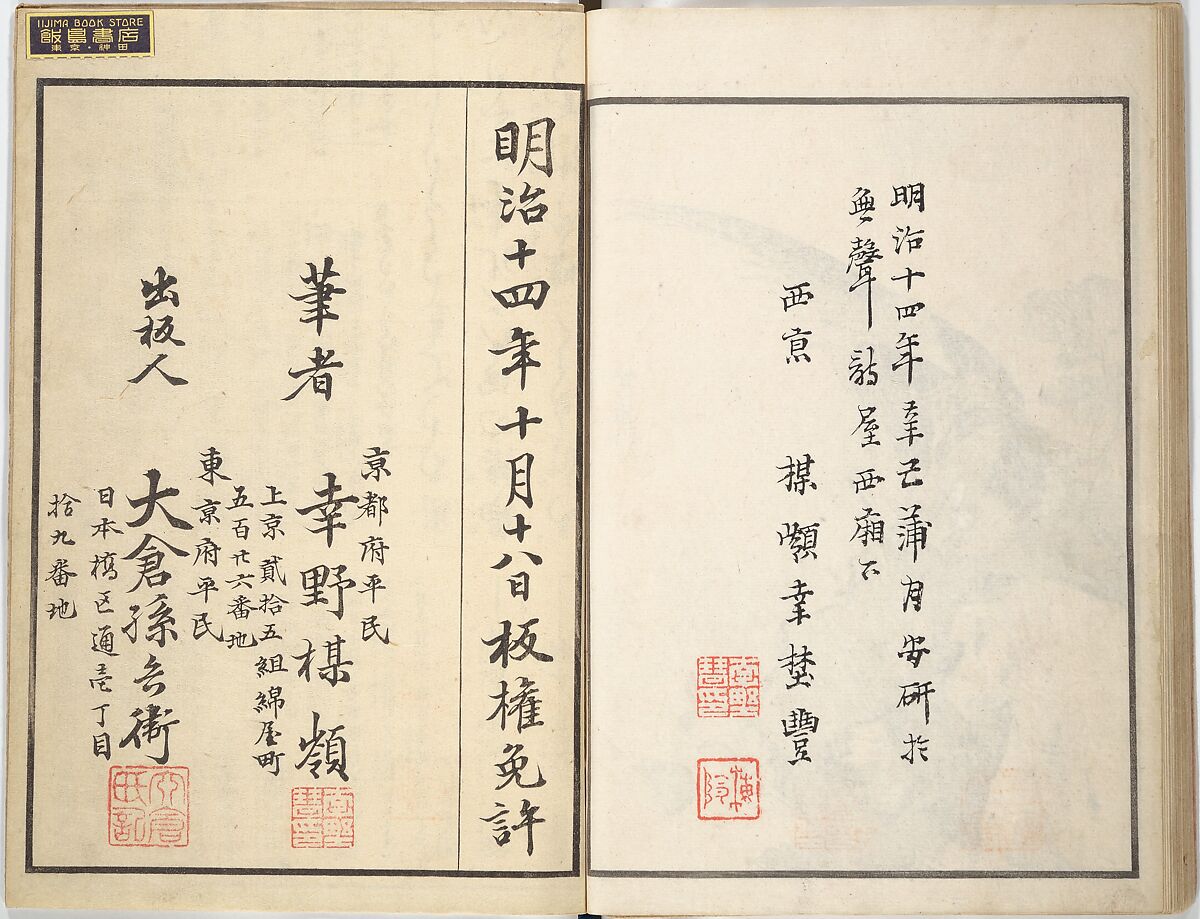 明治十四年辛巳蒲月安研於
無聲詩屋西廂下
西京 楳嶺幸埜豊
明治十四年十月十八日板權免許
筆者
京都府平民
幸野楳嶺
上京貳拾五組綿屋町
五百廿六番地
出板人
東京府平民
大倉孫兵衛
日本橋区通壱丁目
拾九番地
IIJIMA BOOK STORE
飯島書店
東京・神田